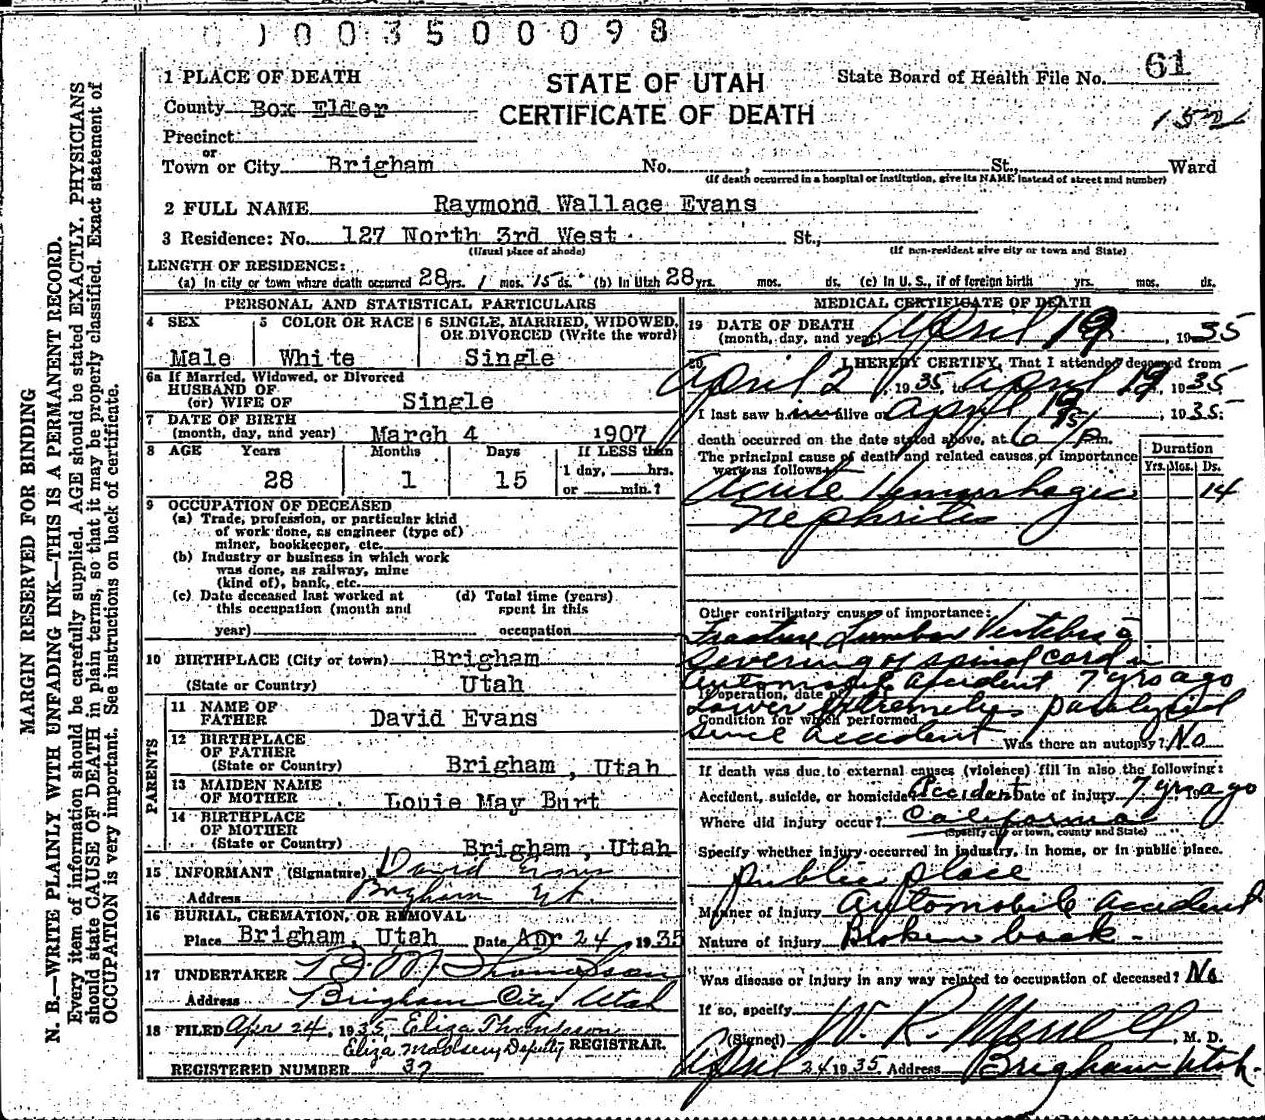 0 0 0 3 5 0 0 0 9 8
MARGIN RESERVED FOR BINDING
N. B.—WRITE PLAINLY WITH UNFADING INK—THIS IS A PERMANENT RECORD.
Every item of information should be carefully supplied. AGE should be stated EXACTLY. PHYSICIANS
should state CAUSE OF DEATH in plain terms, so that it may be properly classified. Exact statement of
OCCUPATION is very important. See instructions on back of certificate.
STATE OF UTAH
CERTIFICATE OF DEATH
State Board of Health File No. 61
152
1 PLACE OF DEATH
County Box Elder
Precinct
or
Town or City Brigham No. , St., Ward
(If death occurred in a hospital or institution, give its NAME instead of street and number)
2 FULL NAME Raymond Wallace Evans
3 Residence: No. 127 North 3rd West St.,
(Usual place of abode) (If non-resident give city or town and State)
LENGTH OF RESIDENCE:
(a) In city or town where death occurred 28 yrs. 1 mos. 15 ds. (b) In Utah 28 yrs. mos. ds. (c) In U. S., if of foreign birth yrs. mos. ds.
PERSONAL AND STATISTICAL PARTICULARS
4 SEX
Male
5 COLOR OR RACE
White
6 SINGLE, MARRIED, WIDOWED,
OR DIVORCED (Write the word)
Single
6a If Married, Widowed, or Divorced
HUSBAND OF
(or) WIFE OF Single
7 DATE OF BIRTH
(month, day, and year) March 4 1907
8 AGE Years Months Days If LESS than
1 day, hrs.
28 1 15 or min.?
9 OCCUPATION OF DECEASED
(a) Trade, profession, or particular kind
of work done, as engineer (type of)
miner, bookkeeper, etc.
(b) Industry or business in which work
was done, as railway, mine
(kind of), bank, etc.
(c) Date deceased last worked at
this occupation (month and
year)
(d) Total time (years)
spent in this
occupation
10 BIRTHPLACE (City or town) Brigham
(State or Country) Utah
PARENTS
11 NAME OF
FATHER David Evans
12 BIRTHPLACE
OF FATHER
(State or Country) Brigham, Utah
13 MAIDEN NAME
OF MOTHER Louie May Burt
14 BIRTHPLACE
OF MOTHER
(State or Country) Brigham, Utah
15 INFORMANT (Signature) David Evans
Address Brigham Ut.
16 BURIAL, CREMATION, OR REMOVAL
Place Brigham, Utah Date Apr 24, 1935
17 UNDERTAKER Thompson
Address Brigham City Utah
18 FILED Apr 24, 1935 Eliza Thompson
Eliza Madsen Deputy REGISTRAR.
REGISTERED NUMBER 37
MEDICAL CERTIFICATE OF DEATH
19 DATE OF DEATH
(month, day, and year) April 19, 1935
20 I HEREBY CERTIFY, That I attended deceased from
April 2, 1935, to April 19, 1935
I last saw him alive on April 19, 1935;
death occurred on the date stated above, at 6 Pm.
The principal cause of death and related causes of importance
were as follows:
Duration
Yrs. Mos. Ds.
Acute Hemorrhagic 14
Nephritis
Other contributory causes of importance:
Fracture Lumbar Vertebra &
Severing of spinal cord in
automobile accident 7 yrs ago
If operation, date of
Lower extremeties paralyzed
Condition for which performed
since accident
Was there an autopsy? No
If death was due to external causes (violence) fill in also the following:
Accident, suicide, or homicide? Accident Date of injury 7 yrs ago 19
Where did injury occur? California
(Specify city or town, county and State)
Specify whether injury occurred in industry, in home, or in public place.
public place
Manner of injury Automobile accident
Nature of injury Broken back -
Was disease or injury in any way related to occupation of deceased? No
If so, specify
(Signed) W. R. Merrell, M. D.
April 24 1935 Address Brigham Utah.